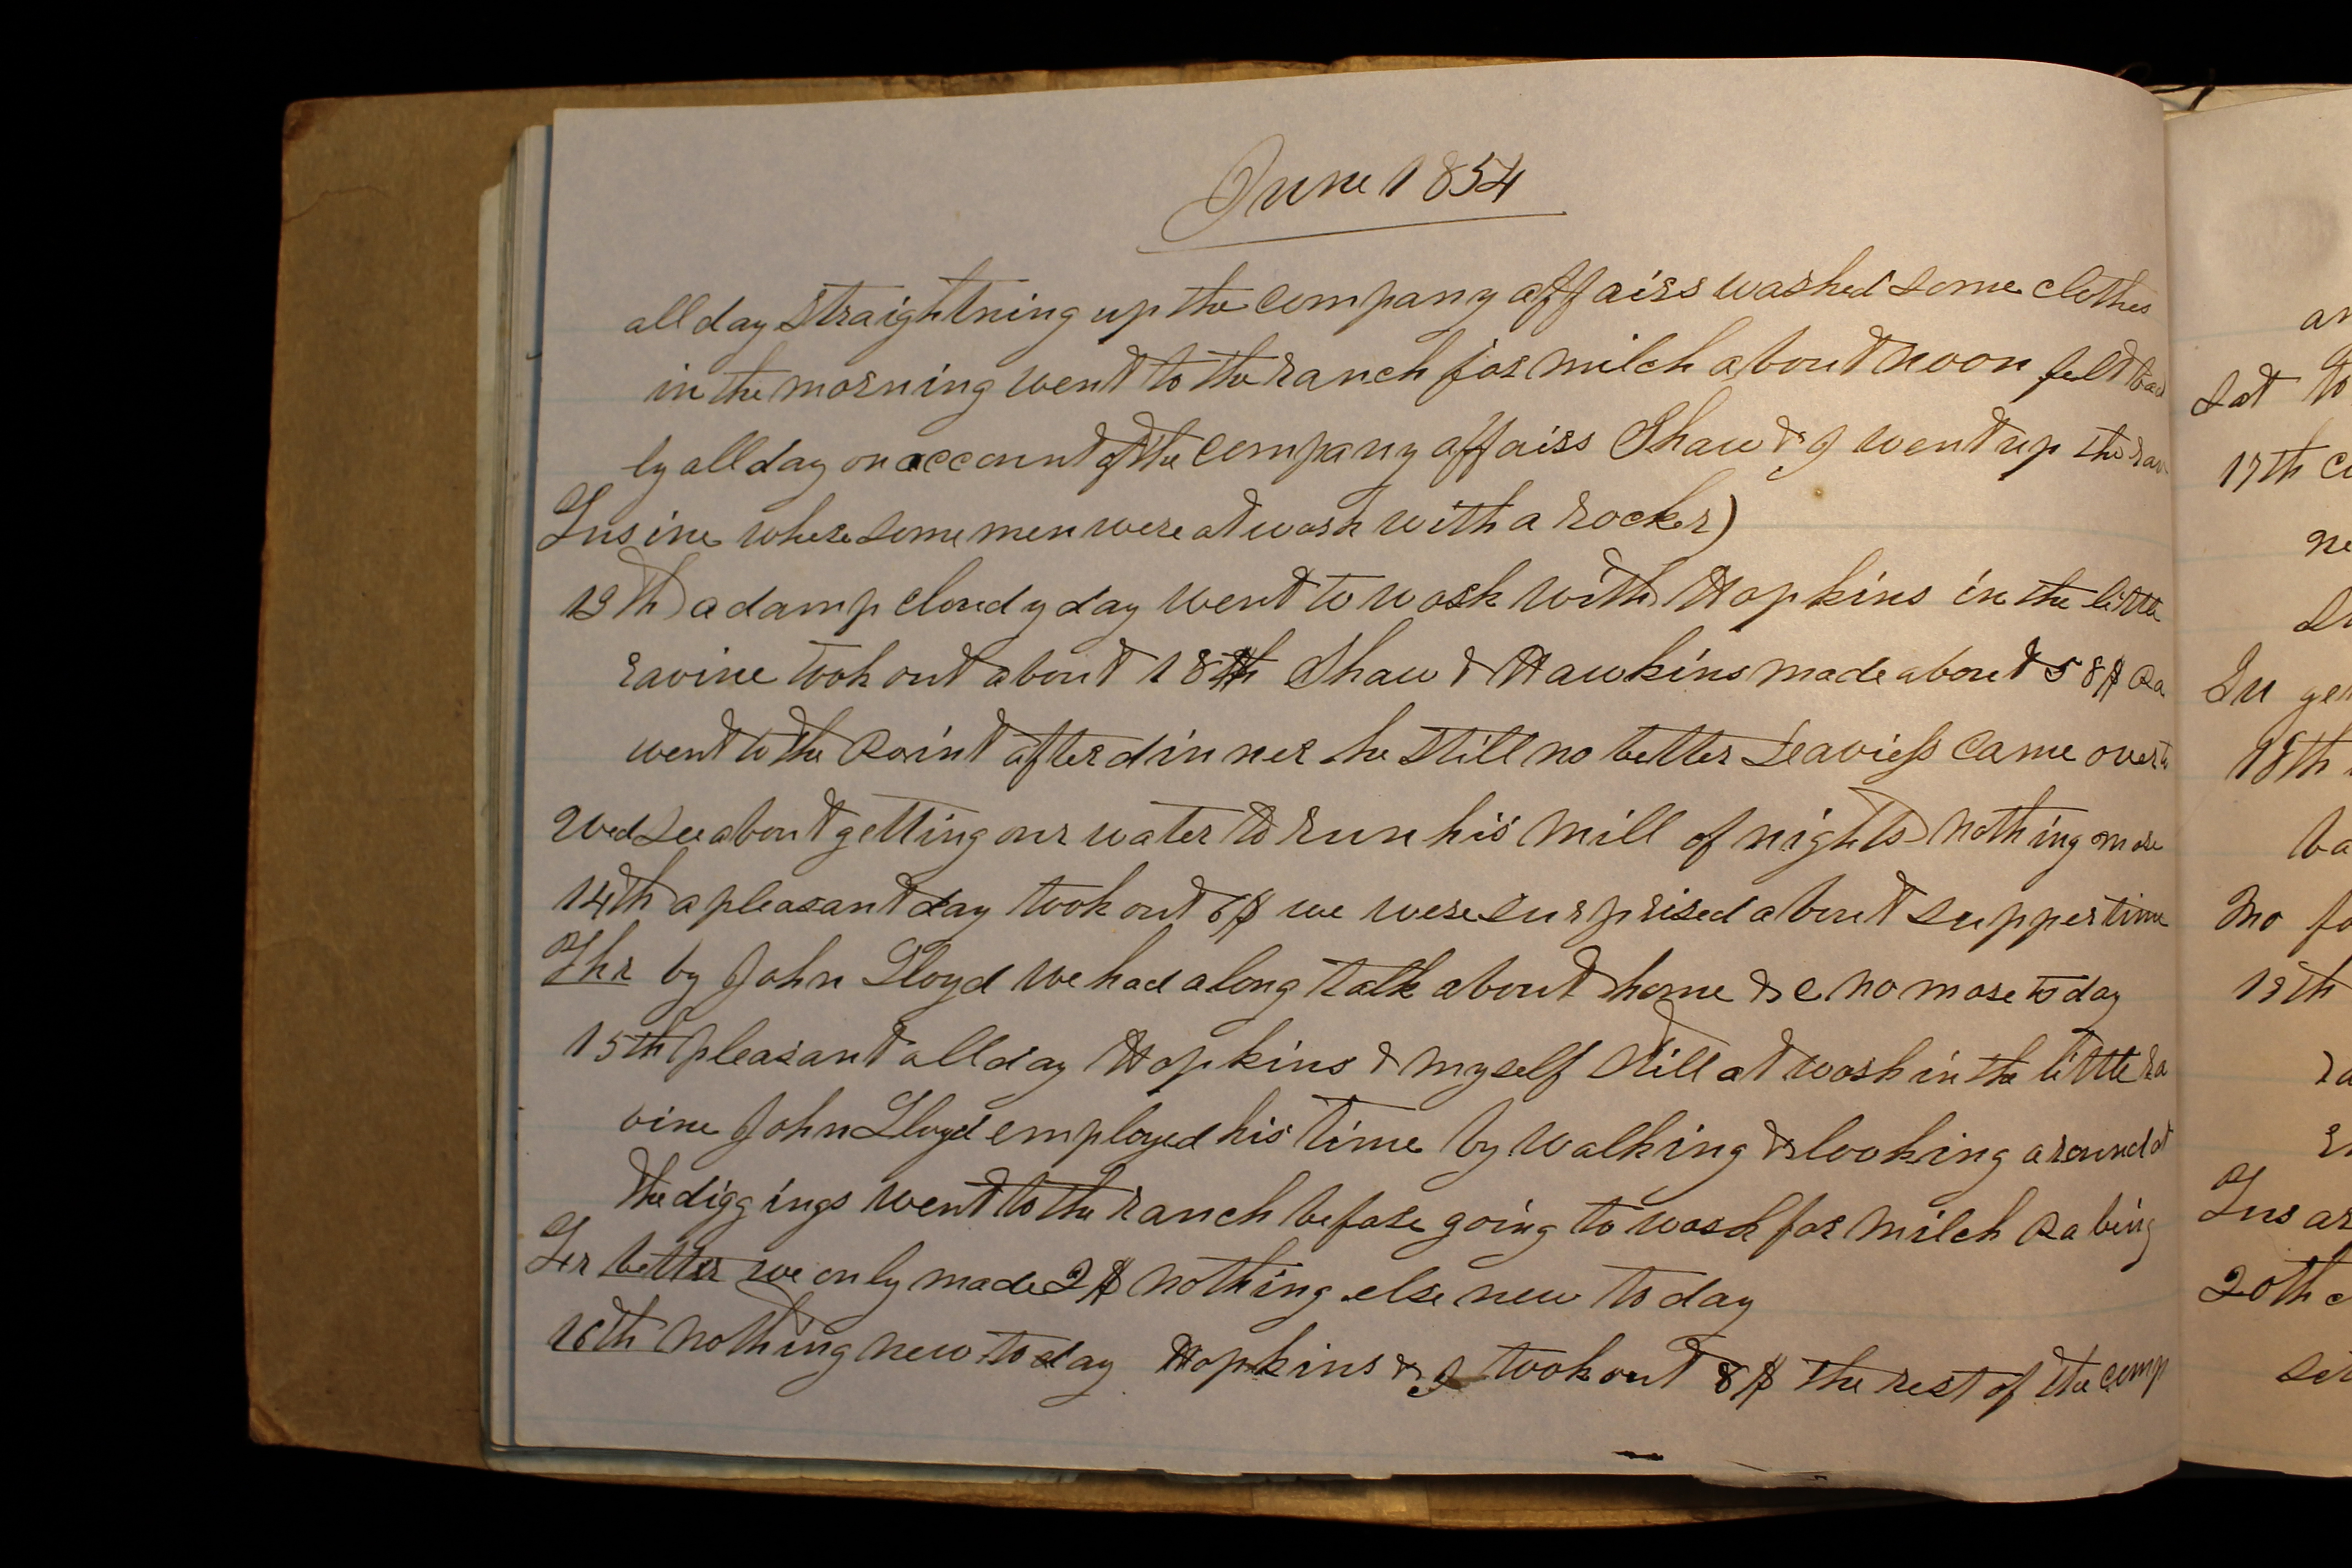 June 1854
all day straightning up the company affairs washed some clothes
in the morning went to the ranch for milch about noon felt bad
ly all day on account of the company affairs Shaw & I went up the rav
Tus ine where some men were at work with a rocker)
13th a damp cloudy day went to work with Hopkins in the little
ravine took out about 18$ Shaw & Hawkins made about 58$ Ra
went to the Point after dinner he still no better Leaviess came over to
Wed see about getting our water to run his mill of nights nothing more
14th a pleasant day took out 6$ we were surprised about supper time
Thr by John Lloyd we had a long talk about home &c no more to day
15th pleasant all day Hopkins & myself still at work in the little ra
vine John Lloyd employed his time by walking & looking around at
the diggings went to the ranch before going to work for milch Ra being
Fr better we only made 2$ nothing else new to day
16th nothing new to day Hopkins & I took out 8$ the rest of the comp
Sat
17th
Su
18th
Mo
19th
Tus
20th